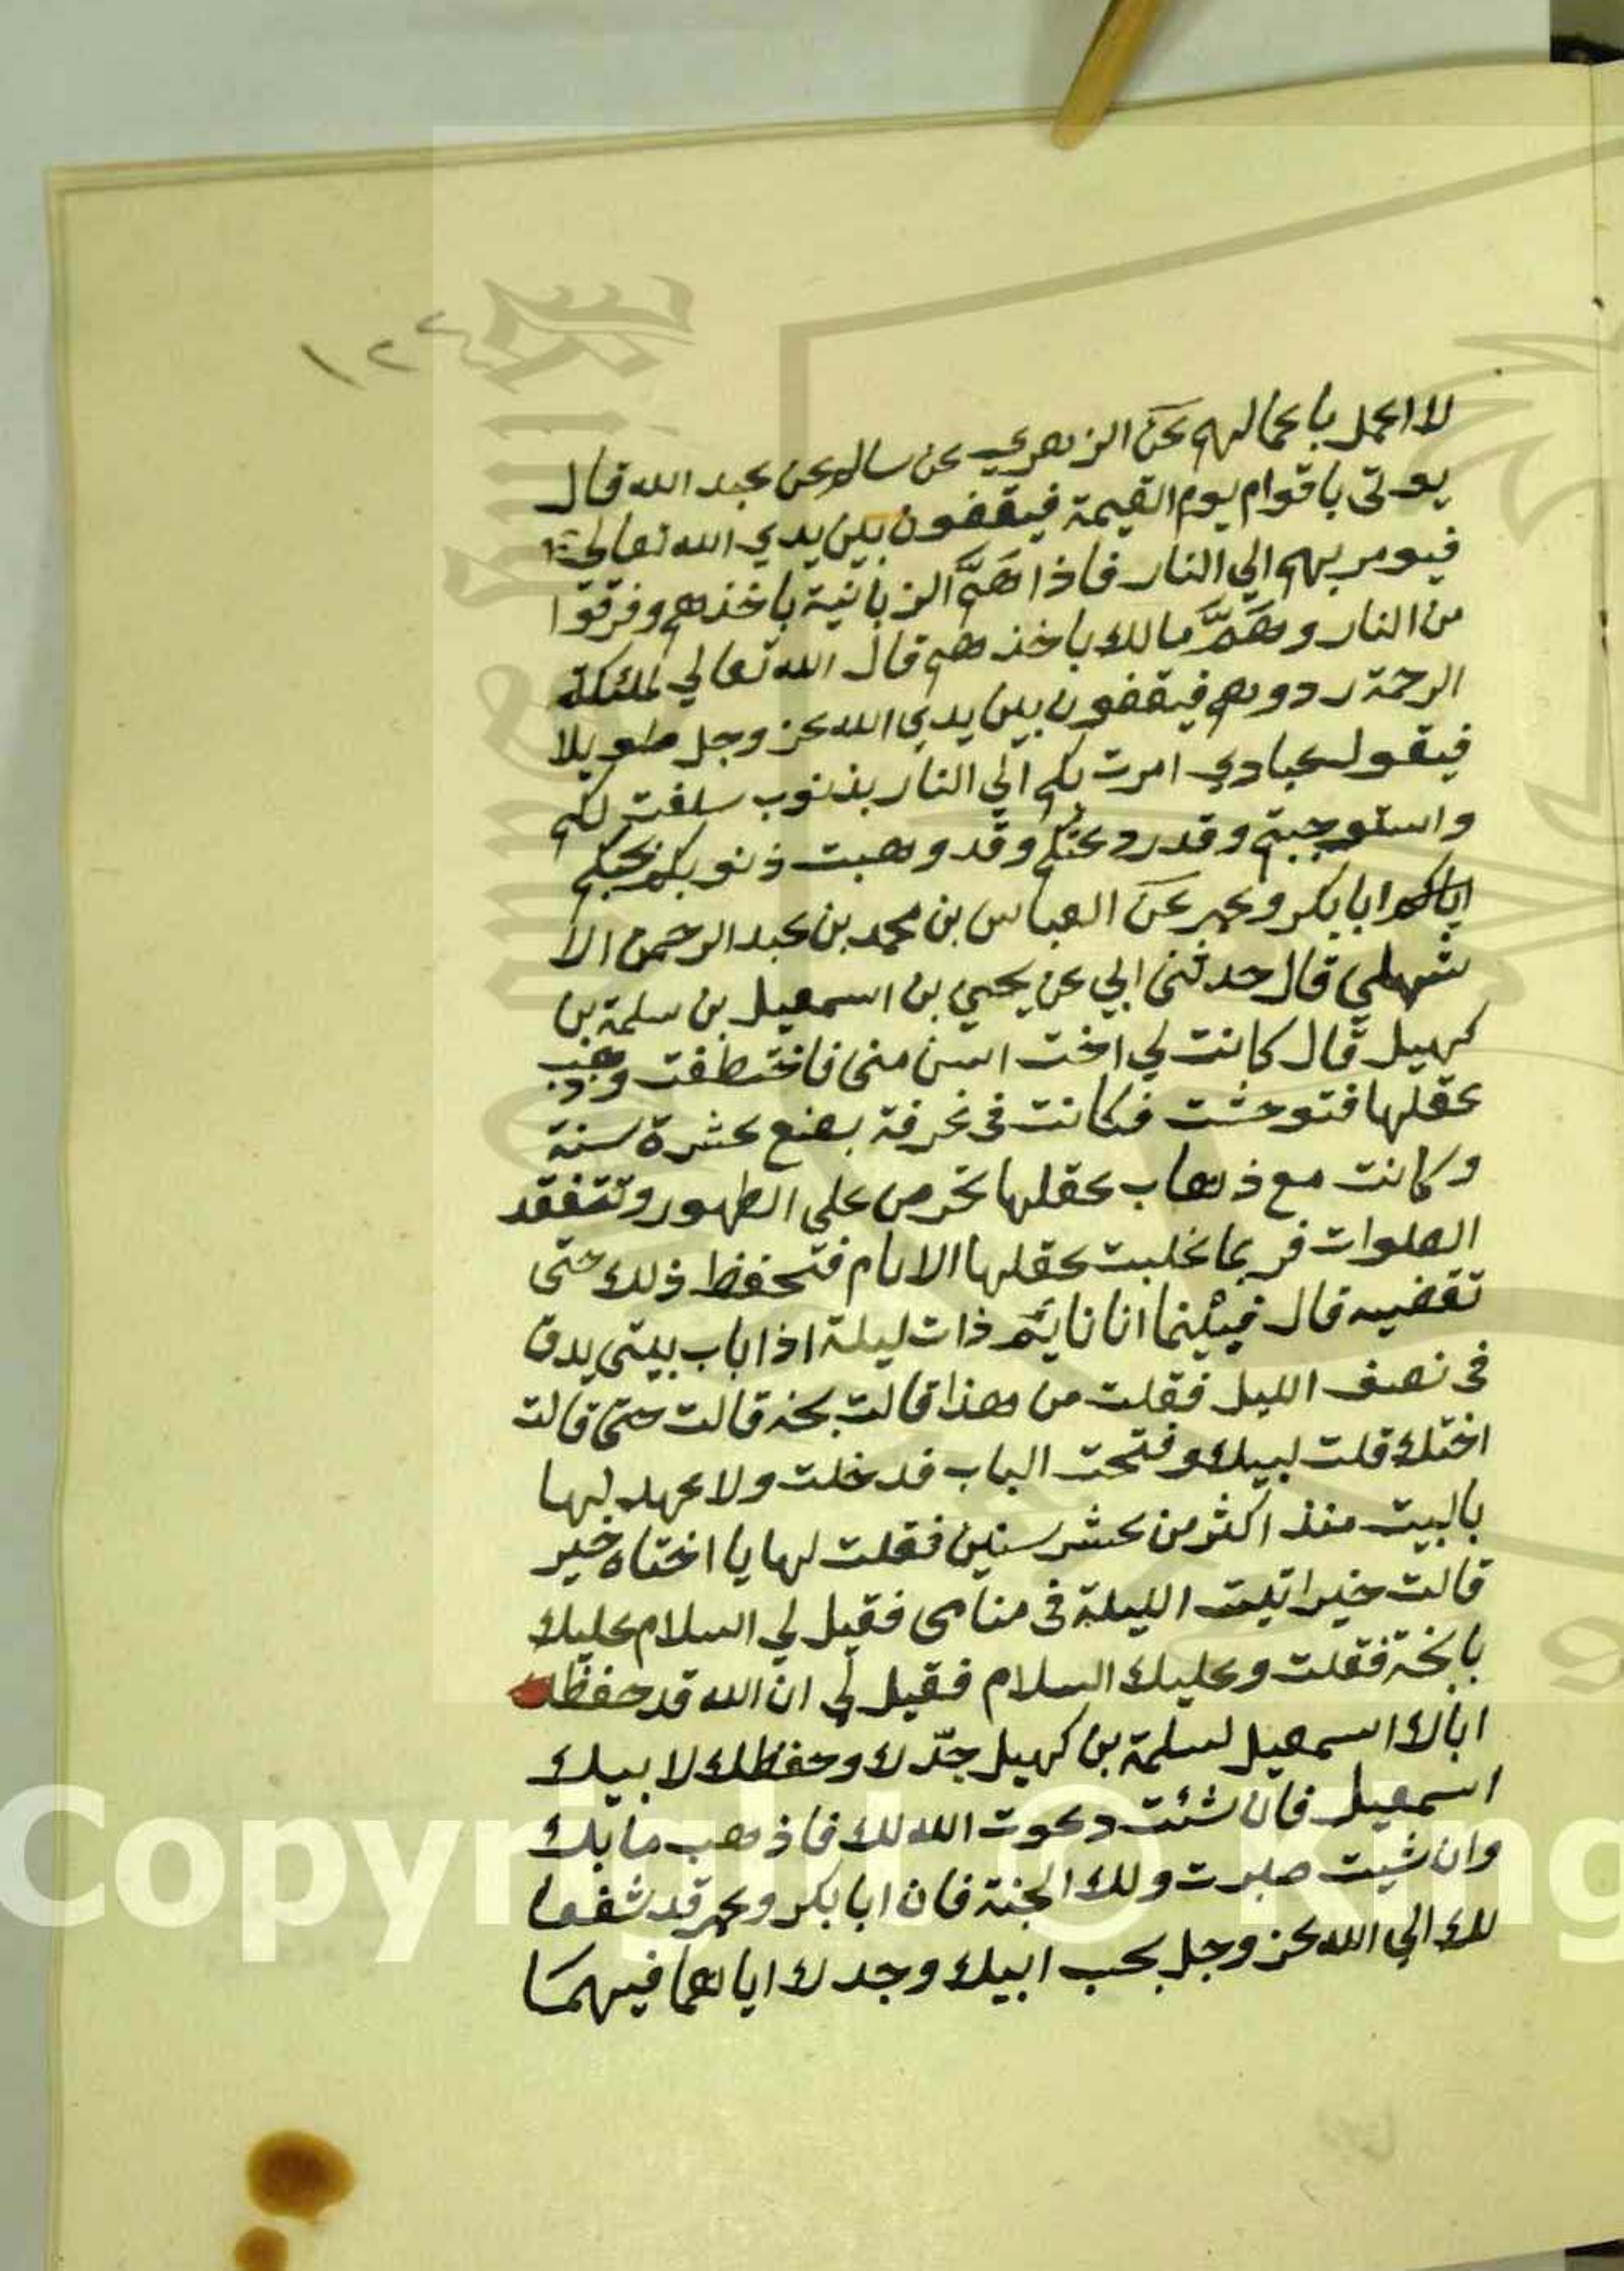 ١٢٤
لا اعمل باعمالهم عن الزهري عن سالم عن عبد الله قال
يوتى باقوام يوم القيمة فيقفون بين يدي الله تعالى
فيومر بهم الي النار فاذا هَمَّ الزبانية باخذهم وفرقوا
من النار وهَمَّ مالك باخذهم قال الله تعالي لملئكة
الرحمة ردوهم فيقفون بين يدي الله عز وجل طويلا
فيقول عبادي امرت بكم الي النار بذنوب سلفت لكم
واستوجبتم وقد رد عنكم وقد وهبت ذنوبكم بحبكم
ابا بكر وعمر عن العباس بن محمد بن عبد الرحمن الا
شهلي قال حدثني ابي عن يحيي بن اسمعيل بن سلمة بن
كهيل قال كانت لي اخت اسن مني فاختطفت وذهب
عقلها فتوحشت فكانت في غرفة بضع عشرة سنة
وكانت مع ذهاب عقلها تحرص علي الطهور وتتفقد
الصلوات فربما غلبت عقلها الايام فتحفظ ذلك حتى
تقضيه قال فبينما انا نايم ذات ليلة اذا باب بيتي يدق
في نصف الليل فقلت من هذا قالت بخة قالت حتى قالت
اختك قلت لبيك وفتحت الباب فدخلت ولا عهد لها
بالبيت منذ اكثر من عشر سنين فقلت لها يا اختاه خير
قالت خير اتيت الليلة في منامي فقيل لي السلام عليك
يا بخة فقلت وعليك السلام فقيل لي ان الله قد حفظ
اباك اسمعيل لسلمة بن كهيل جدّك وحفظك لابيك
اسمعيل فان شئت دعوت الله لك فاذهب ما بك
وان شيت صبرت ولك الجنة فان ابا بكر وعمر قد شفعا
لك الي الله عز وجل بحب ابيك وجدك اياهما فيهما
Copyright © King